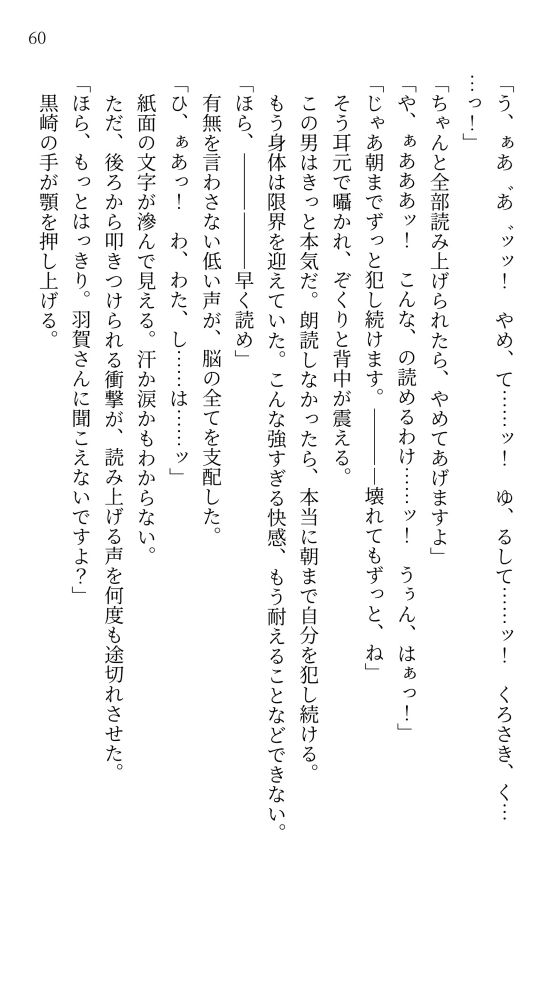 60
「う、ぁあ゛あ゛ッッ！　やめ、て……ッ！　ゆ、るして……ッ！　くろさき、く…
…っ！」
「ちゃんと全部読み上げられたら、やめてあげますよ」
「や、ぁあああッ！　こんな、の読めるわけ……ッ！　うぅん、はぁっ！」
「じゃあ朝までずっと犯し続けます。―――壊れてもずっと、ね」
そう耳元で囁かれ、ぞくりと背中が震える。
この男はきっと本気だ。朗読しなかったら、本当に朝まで自分を犯し続ける。
もう身体は限界を迎えていた。こんな強すぎる快感、もう耐えることなどできない。
「ほら、――――早く読め」
有無を言わさない低い声が、脳の全てを支配した。
「ひ、ぁあっ！　わ、わた、し……は……ッ」
紙面の文字が滲んで見える。汗か涙かもわからない。
ただ、後ろから叩きつけられる衝撃が、読み上げる声を何度も途切れさせた。
「ほら、もっとはっきり。羽賀さんに聞こえないですよ？」
黒崎の手が顎を押し上げる。